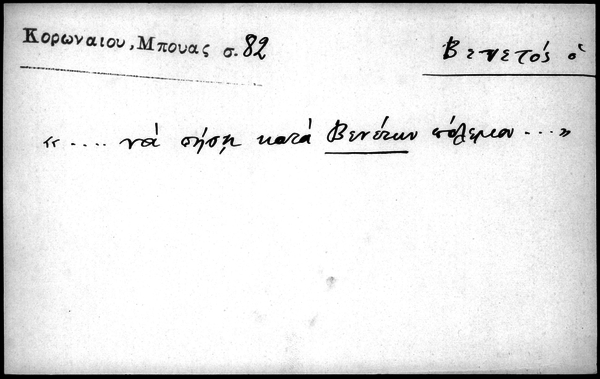 Κορωναιου, Μπουας σ. 82
Βενετός ὁ
«.... νά στήση κατά Βενέτων πόλεμον ...»